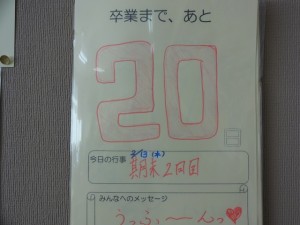 卒業まで、あと
20
日
今日の行事
2/13(木)
期末2日目
みんなへのメッセージ
うっふ~~んっ♥